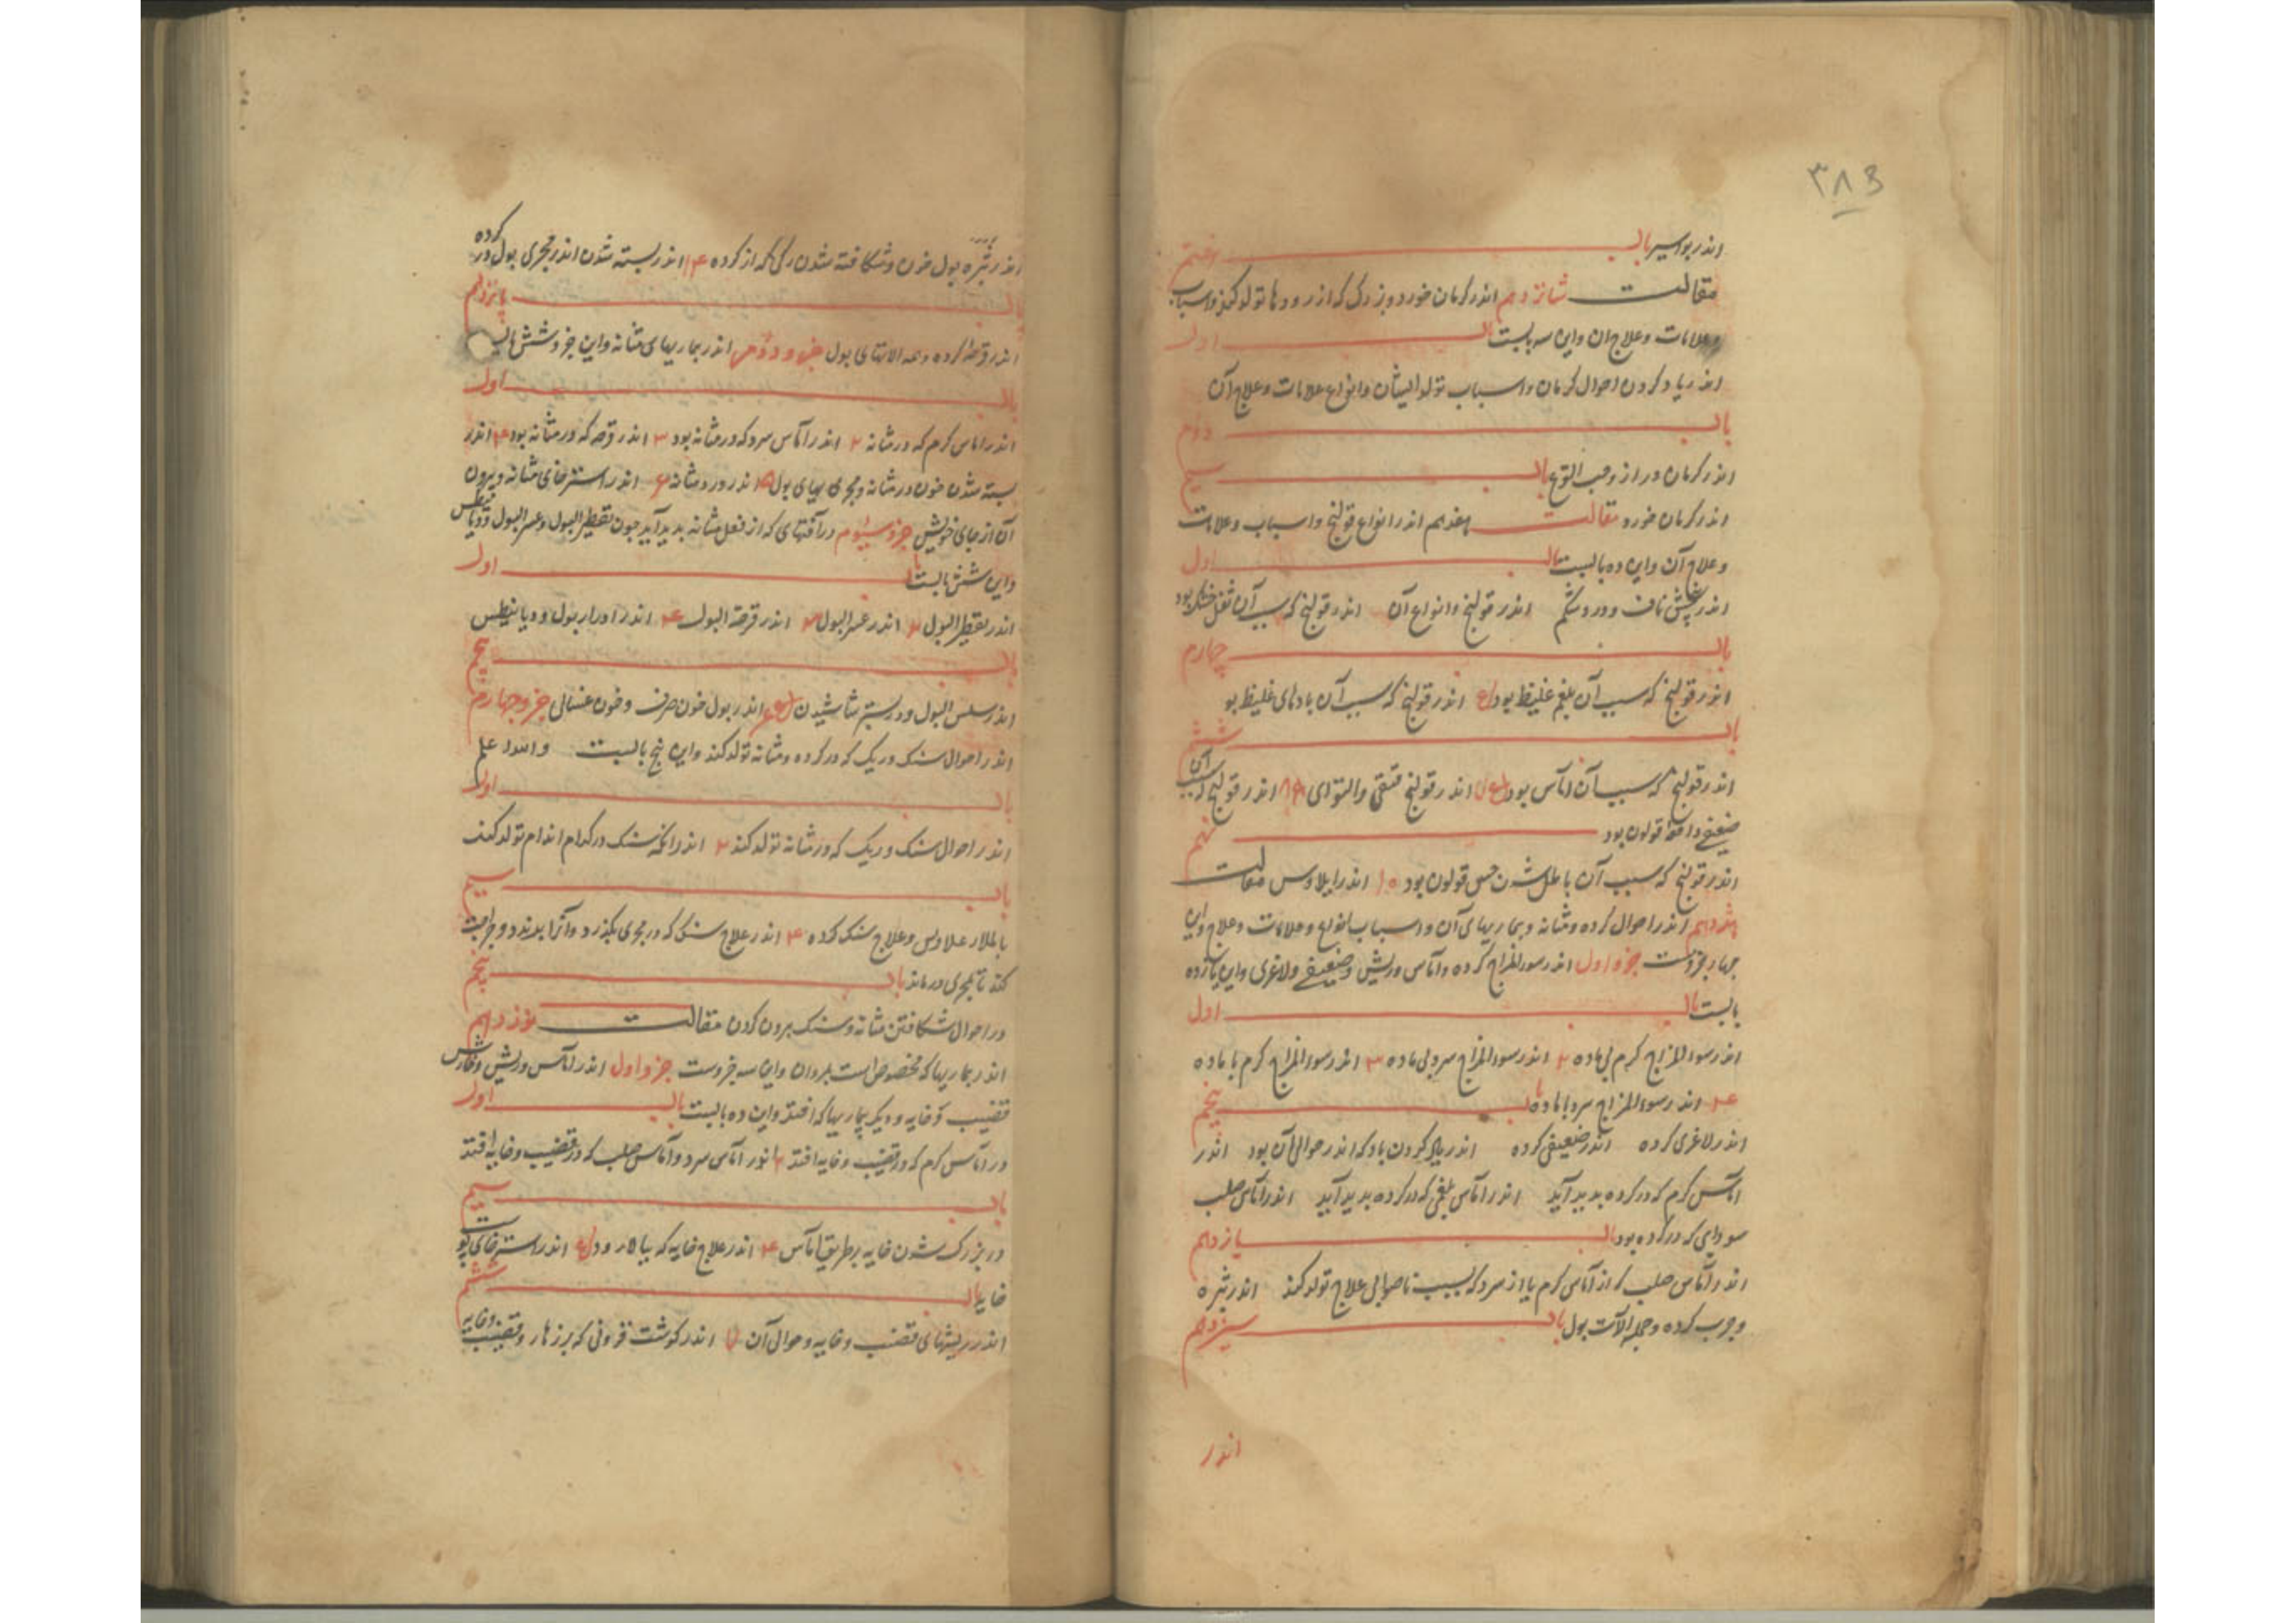 ۳۸۳
اندر بواسیر باب هفتم
مقالت شانزدهم اندر کرمان خورد و بزرک که از رودها تولد کند و اسباب
و علامات و علاج ان و این سه بابست باب اول
اندر یاد کردن احوال کرمان و اسباب تولد ایشان و انواع علامات و علاج آن
باب دوم
اندر کرمان دراز و حب القرع باب سیم
اندر کرمان خورد مقالت هفدهم اندر انواع قولنج و اسباب و علامت
و علاج آن و این ده بابست باب اول
اندر پیچش ناف و درد شکم اندر قولنج و انواع آن اندر قولنج که سبب آن ثفل خشک بود
باب چهارم
اندر قولنج که سبب آن بلغم غلیظ بود اندر قولنج که سبب آن بادهای غلیظ بود
باب ششم
اندر قولنج که سبب آن اماس بود ۷ اندر قولنج فتقی و التوای ۸ اندر قولنج که سبب آن
ضعیفی دافعه قولون بود نهم
اندر قولنج که سبب آن باطل شدن حس قولون بود ۱۰ اندر ایلاوس مقالت
هژدهم اندر احوال کرده و مثانه و بیماریهای آن و اسباب انواع و علامات و علاج و این
چهار جزوست جزو اول اندر سوء المزاج کرده و آماس و ریش و ضعیفی و لاغری و این پانزده
بابست باب اول
اندر سوء المزاج کرم بی ماده ۲ اندر سوء المزاج سرد بی ماده ۳ اندر سوء المزاج کرم با ماده
۴ اندر سوء المزاج سرد با ماده باب پنجم
اندر لاغری کرده اندر ضعیفی کرده اندر باد که اندر حوالی آن بود اندر
آماس کرم که در کرده بدید آید اندر آماس بلغمی که در کرده بدید آید اندر آماس صلب
سودای که در کرده بود باب یازدهم
اندر آماس صلب که از آماس کرم یا از سرد که بسبب ناصوابی علاج تولد کند اندر بثره
و جرب کرده و جمله آلات بول باب سیزدهم
اندر
اندر بثره بول خون و شکافته شدن رکی که از کرده ۱۴ اندر بسته شدن اندر مجری بول در کرده
باب پانزدهم
اندر قرحه کرده و همه آلاتهای بول جزو دوم اندر بیماریهای مثانه و این جزو شش بابست
باب اول
اندر اماس کرم که در مثانه ۲ اندر آماس سرد که در مثانه بود ۳ اندر قرحه که در مثانه بود ۴ اندر
بسته شدن خون در مثانه و مجری بول ۵ اندر درد مثانه ۶ اندر استرخای مثانه و بیرون
آن از جای خویش جزو سیوم در آفتهای که از فعل مثانه بدید آید چون تقطیر البول و عسر البول و دیانیطس
و این شش بابست باب اول
اندر تقطیر البول ۲ اندر عسر البول ۳ اندر قرحة البول ۴ اندر ادرار بول و دیانیطس
باب پنجم
اندر سلس البول و در بستر شاشیدن ۶ اندر بول خون صرف و خون غسالی جزو چهارم
اندر احوال سنک و ریک که در کرده و مثانه تولد کند و این پنج بابست والله اعلم
باب اول
اندر احوال سنک و ریک که در مثانه تولد کند ۲ اندر آنکه سنک در کدام اندام تولد کند
باب سیم
و علاج سنک کرده ۴ اندر علاج سنک که در مجری بکیرد و آنرا ببندد و جراحت
کند تا بمجری در ماند باب پنجم
در احوال شکافتن مثانه و سنک بیرون کردن مقالت نوزدهم
اندر بیماریها که مخصوص است بمردان و این سه جزوست جزو اول اندر آماس و ریش و خارش
قضیب و خایه و دیکر بیماریها که افتد و این ده بابست باب اول
در آماس کرم که در قضیب و خایه افتد ۲ اندر آماس سرد و آماس صلب که در قضیب و خایه افتد
باب سیم
در بزرک شدن خایه بر طریق آماس ۴ اندر علاج خایه که ببالا رود اندر استرخای پوست
خایه باب ششم
اندر ریشهای قضیب و خایه و حوالی آن ۷ اندر کوشت فزونی که بر زهار و قضیب و خایه